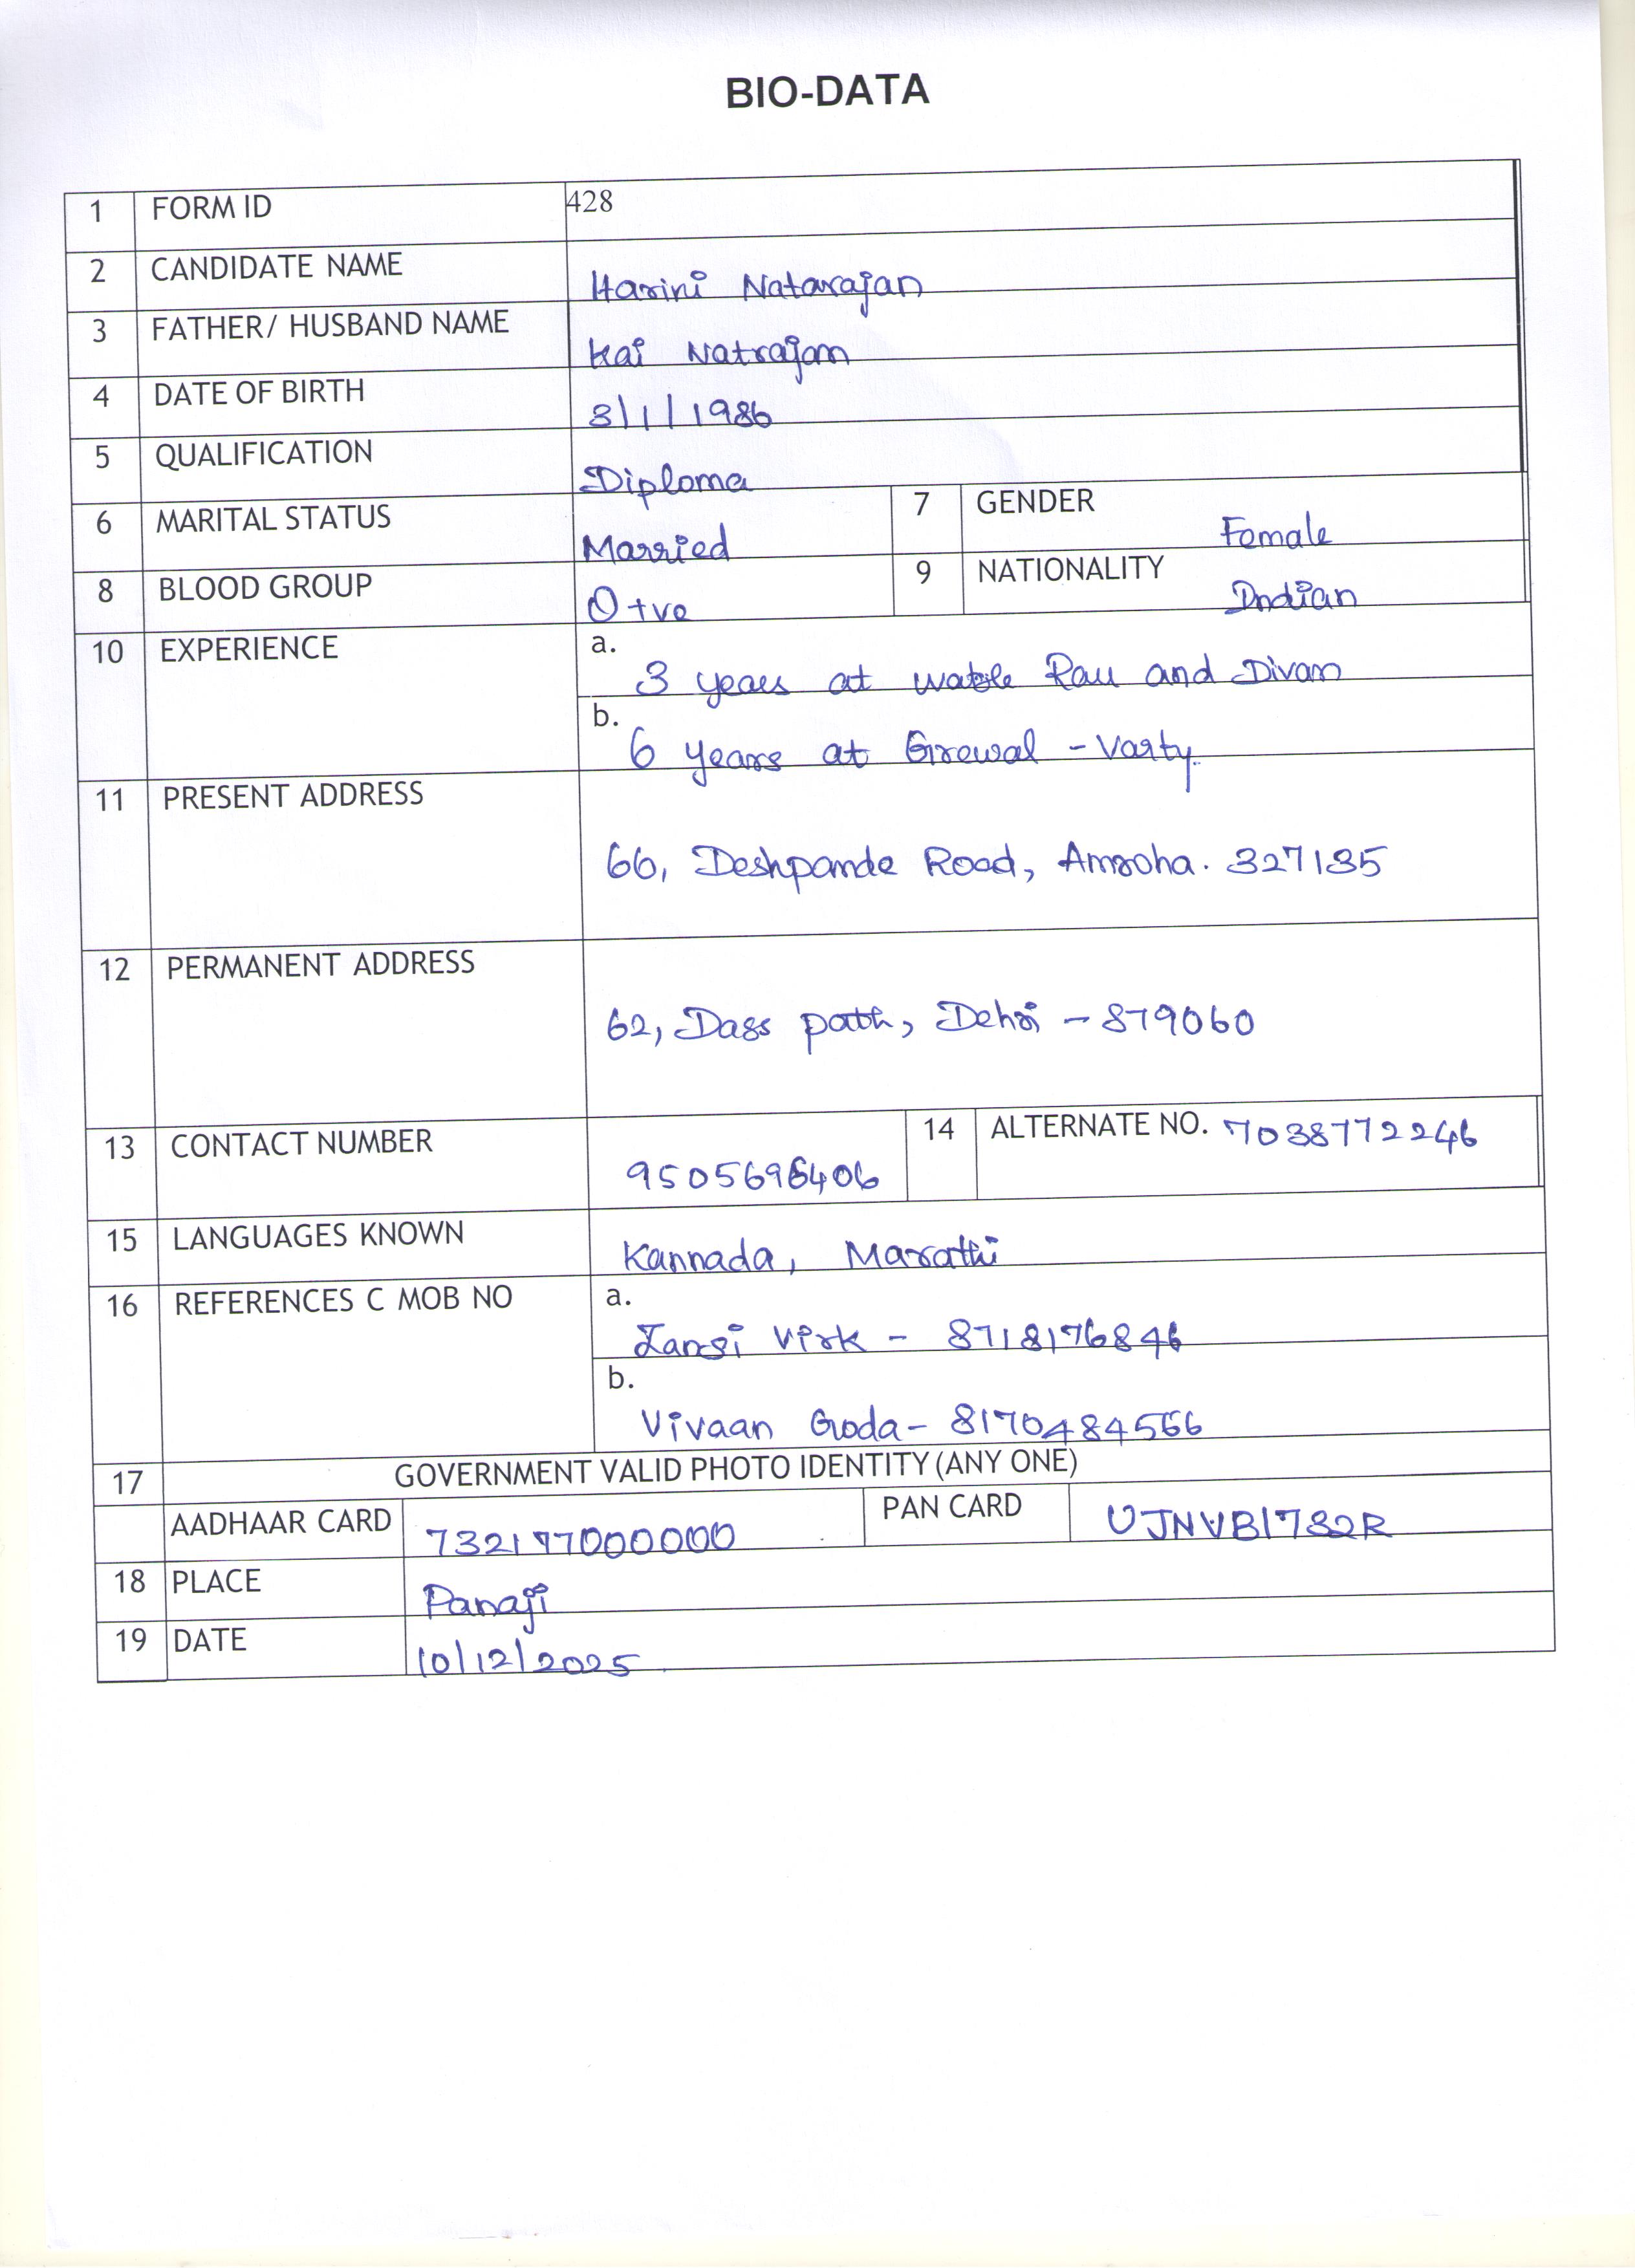 BIO-DATA
1 FORM ID 428
2 CANDIDATE NAME Harini Natarajan
3 FATHER/ HUSBAND NAME Kai Natrajan
4 DATE OF BIRTH 3/1/1986
5 QUALIFICATION Diploma
6 MARITAL STATUS Married 7 GENDER Female
8 BLOOD GROUP O+ve 9 NATIONALITY Indian
10 EXPERIENCE a. 3 years at Wable Rau and Divan
b. 6 years at Grewal - Varty.
11 PRESENT ADDRESS
66, Deshpande Road, Amroha. 327135
12 PERMANENT ADDRESS
62, Dass path, Dehri - 879060
13 CONTACT NUMBER 9505696406 14 ALTERNATE NO. 7038772246
15 LANGUAGES KNOWN Kannada, Marathi
16 REFERENCES C MOB NO a. Virk - 8718176846
b. Vivaan Goda - 8170484566
17 GOVERNMENT VALID PHOTO IDENTITY (ANY ONE)
AADHAAR CARD 732177000000 PAN CARD UJNVB1782R
18 PLACE Panaji
19 DATE 10/12/2025